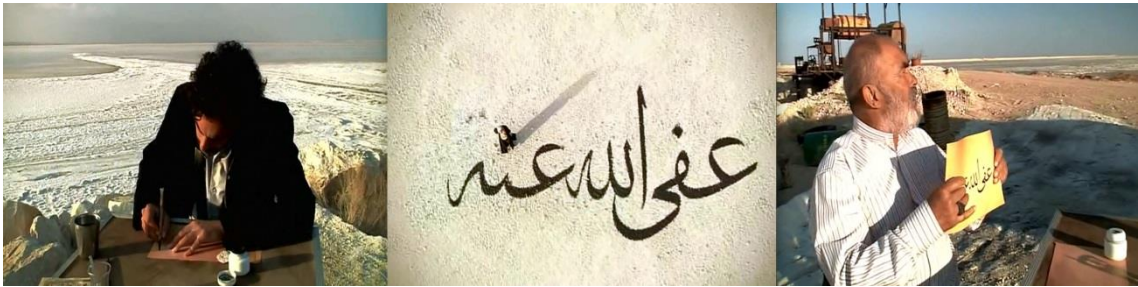 عفى الله عنه
عفى الله